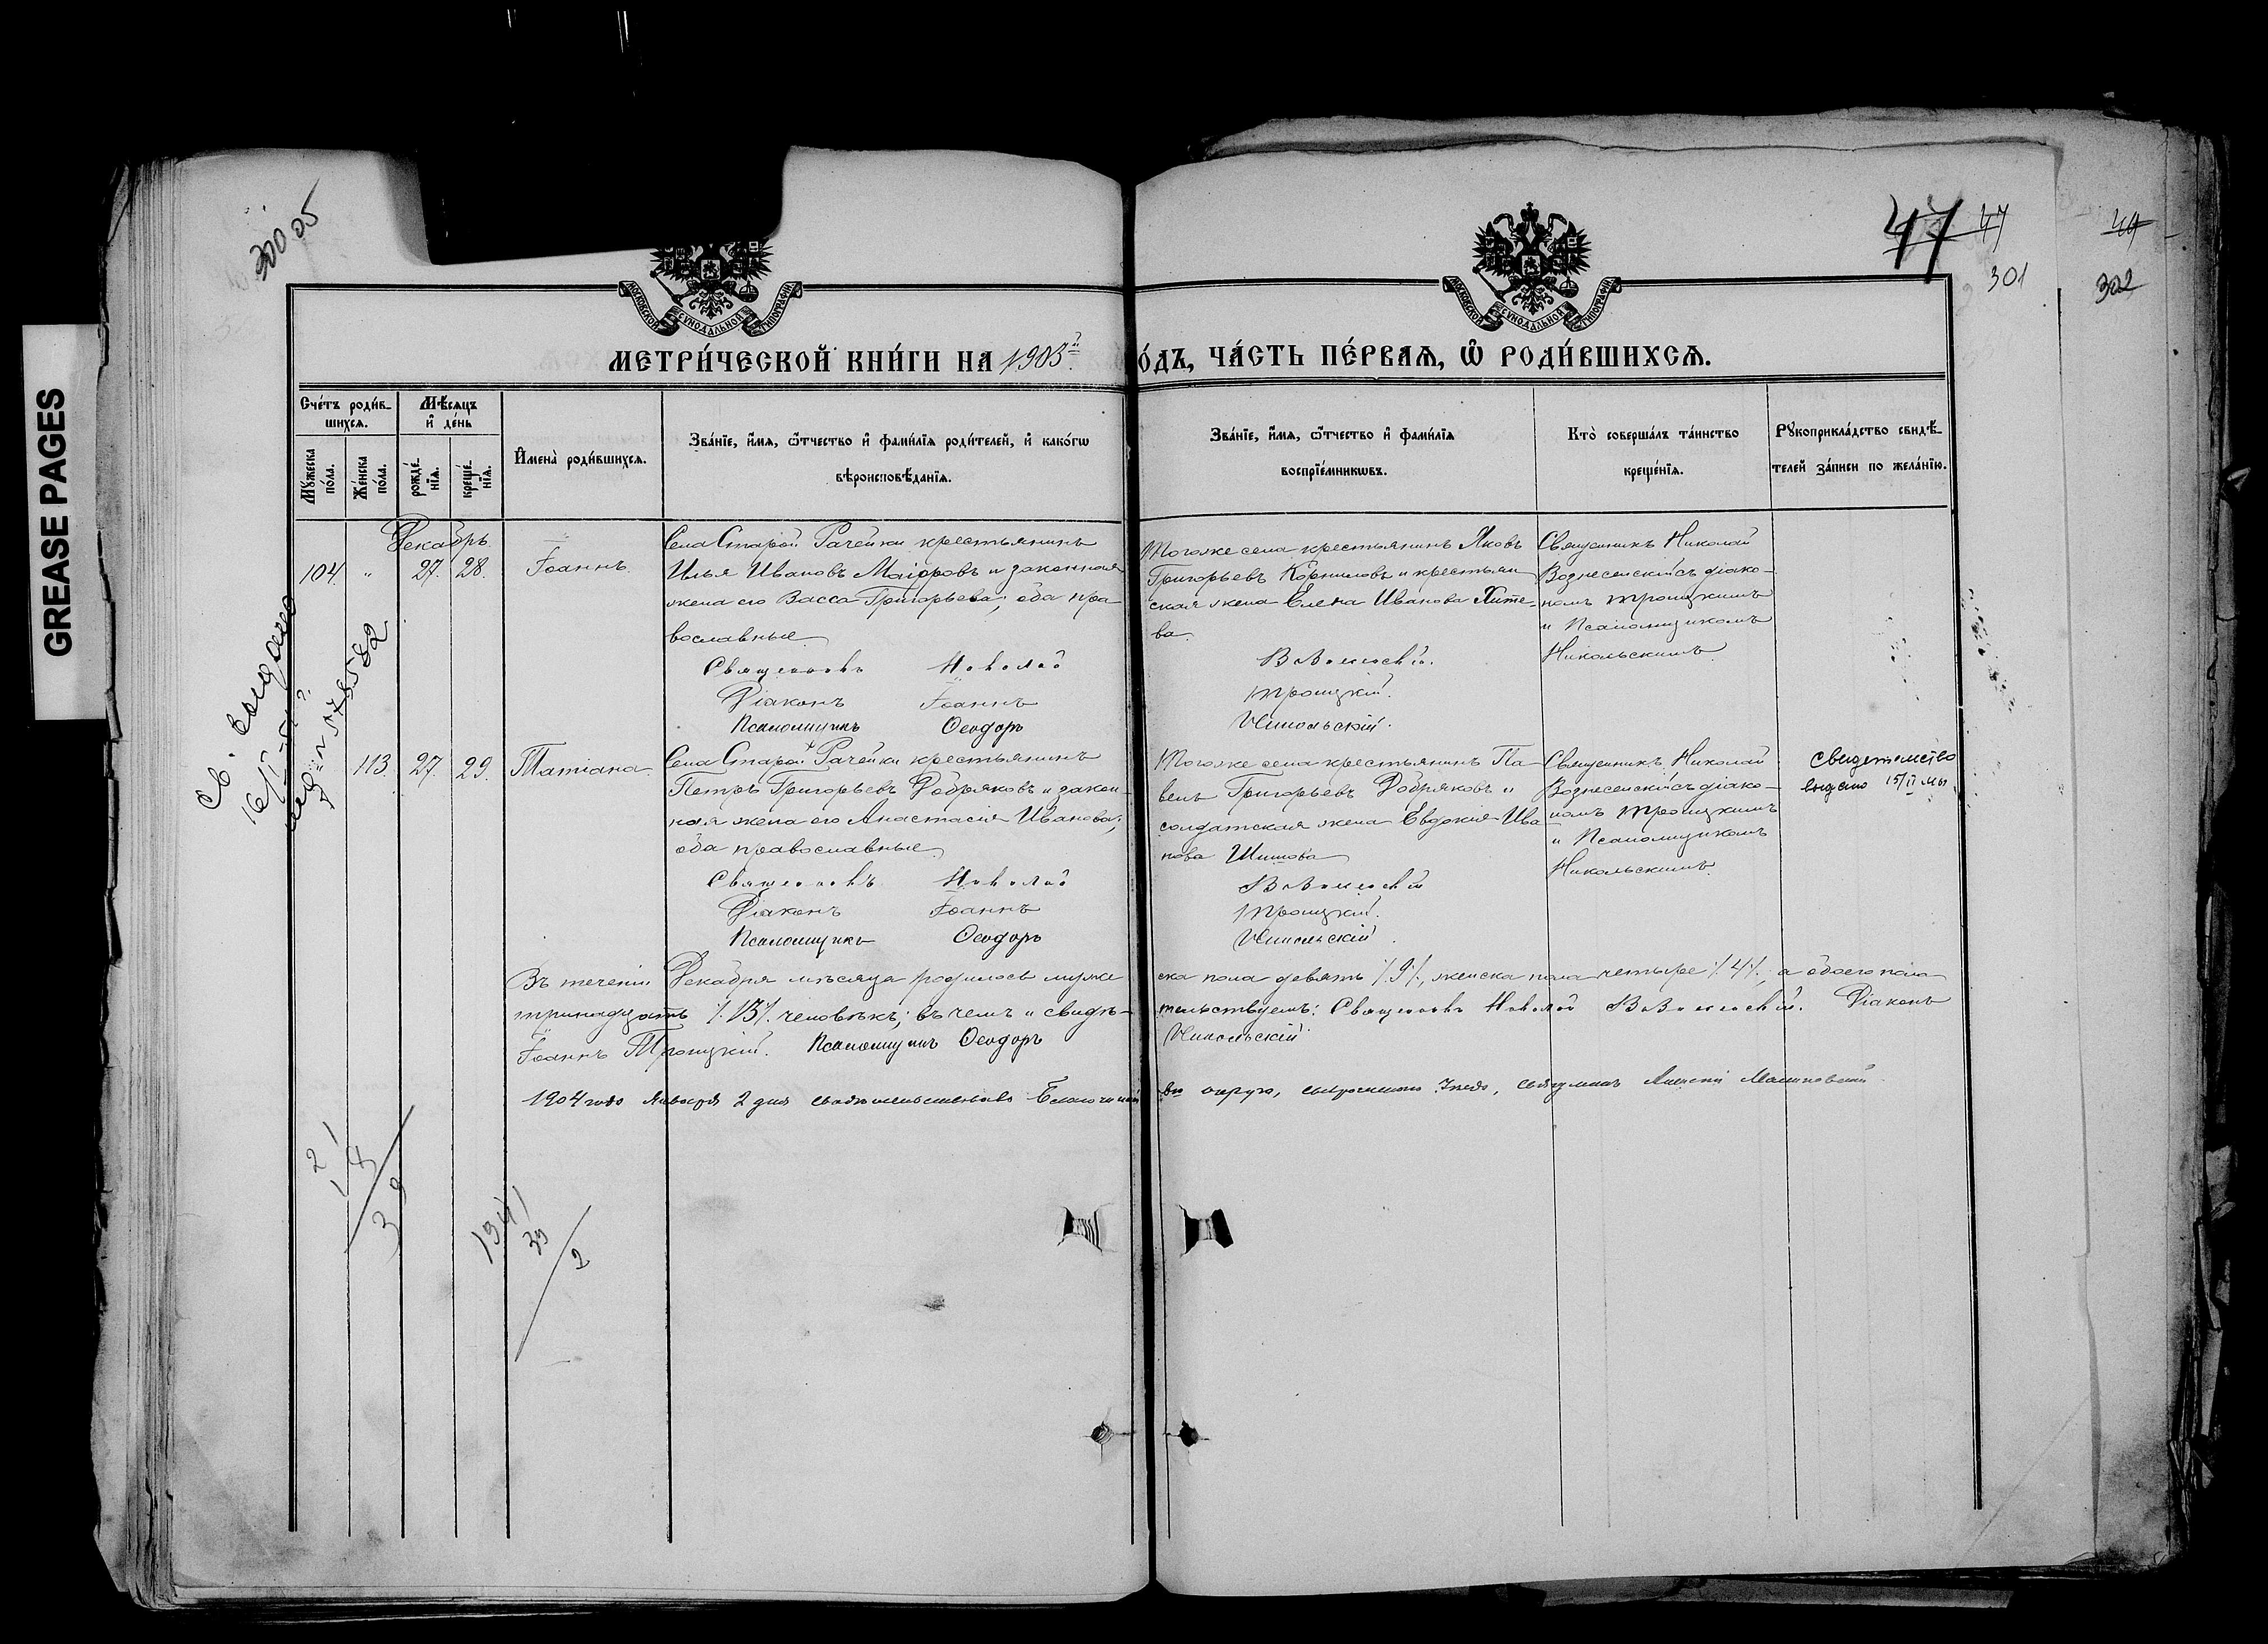 GREASE PAGES
30005
47 47
301
44
302
МОСКОВСКОЙ СѴНОДАЛЬНОЙ ТИПОГРАФІИ
МОСКОВСКОЙ СѴНОДАЛЬНОЙ ТИПОГРАФІИ
МЕТРИ́ЧЕСКОЙ КНИ́ГИ НА 1903й
О́ДЪ, ЧА́СТЬ ПЕ́РВАѦ, Ѡ҆ РОДИ́ВШИХСѦ.
Сче́тъ роди́в-
шихсѧ.
Мѣ́сѧцъ
и҆ де́нь
Мꙋ́жеска
по́ла.
Же́нска
по́ла.
рожде́-
нїѧ.
креще́-
нїѧ.
И҆мена̀ роди́вшихсѧ.
Зва́нїе, и҆́мѧ, ѻ҆́тчество и҆ фами́лїѧ роди́телей, и҆ како́гѡ
вѣроисповѣ́данїѧ.
Зва́нїе, и҆́мѧ, ѻ҆́тчество и҆ фами́лїѧ
воспрїе́мникѡвъ.
Кто̀ соверша́лъ та́инство
креще́нїѧ.
Рꙋкоприкла́дство свидѣ́-
телей за́писи по жела́нїю.
Декабрь
104. " 27. 28. Іоаннъ
Села Старой Рачейки крестьянинъ
Илья Ивановъ Маіоровъ и законная
жена его Васса Григорьева; оба пра-
вославные
Священникъ Николай
Діаконъ Іоаннъ
Псаломщикъ Ѳеодоръ
Тогоже села крестьянинъ Яковъ
Григорьевъ Корниловъ и крестьян-
ская жена Елена Иванова Хите-
ва.
Вознесенскій.
Троицкій.
Никольскій.
Священникъ Николай
Вознесенскій съ діако-
номъ Троицкимъ
и Псаломщикомъ
Никольскимъ.
Св. выдано
113. 27. 29. Татіана
Села Старой Рачейки крестьянинъ
Петръ Григорьевъ Добряковъ и закон-
ная жена его Анастасія Иванова;
оба православные
Священникъ Николай
Діаконъ Іоаннъ
Псаломщикъ Ѳеодоръ
Тогоже села крестьянинъ Па-
велъ Григорьевъ Добряковъ и
солдатская жена Евдокія Ива-
нова Шишова
Вознесенскій
Троицкій.
Никольскій
Священникъ Николай
Вознесенскій съ діако-
номъ Троицкимъ
и Псаломщикомъ
Никольскимъ.
Свидетельство
выдано 15/II
Въ теченіи Декабря мѣсяца родилось муже-
ска пола девять /.9/., женска пола четыре /.4/., а обоего пола
тринадцать /.13/. человѣкъ; въ чемъ и свидѣ-
тельствуемъ: Священникъ Николай Вознесенскій. Діаконъ
Іоаннъ Троицкій. Псаломщикъ Ѳеодоръ
Никольскій
1904 года Января 2 дня свидѣтельствовалъ Благочинный
округа, священникъ Алексій Малиновскій
2/
14
39
1941
39
2